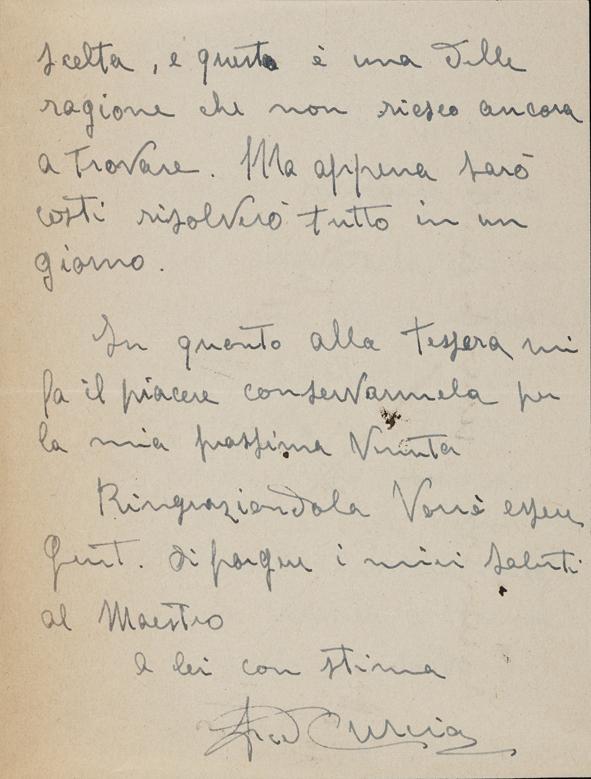 scelta, e questa è una delle
ragione che non riesco ancora
a trovare. Ma appena sarò
costi risolverò tutto in un
giorno.
In quanto alla tessera mi
fa il piacere conservarmela per
la mia prossima venuta
Ringraziandola Vorrè essere
Gent. di porgere i miei saluti
al Maestro
E lei con stima